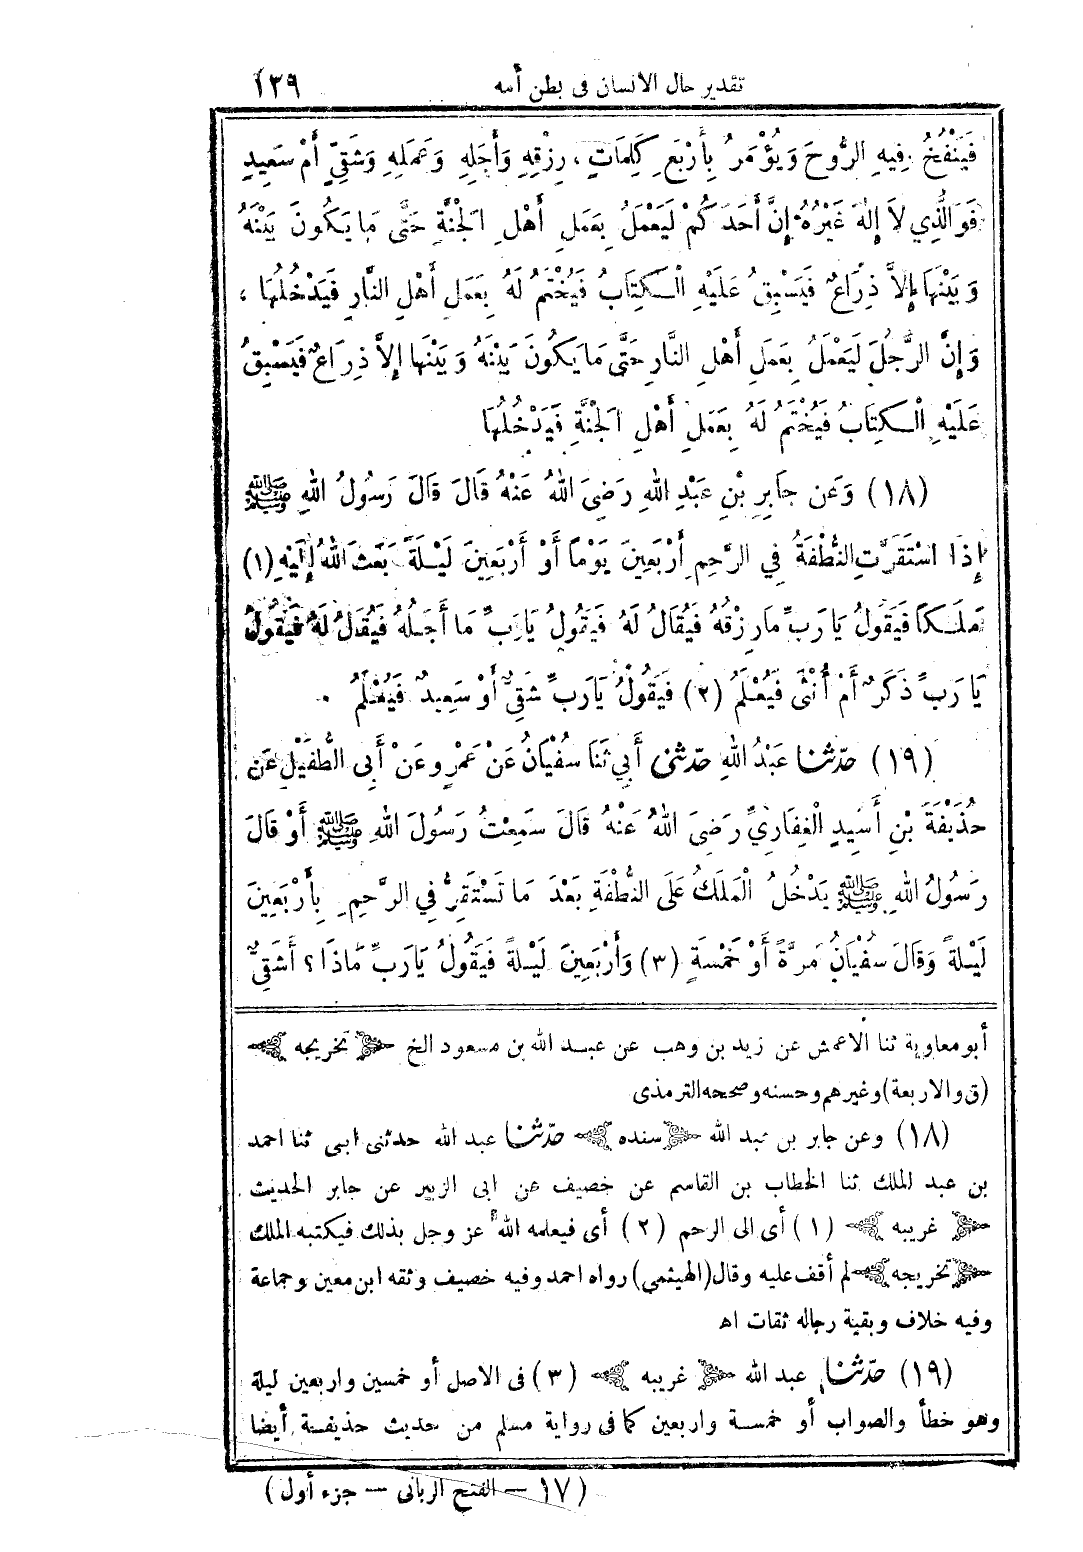 تقدير حال الانسان فى بطن أمه ١٢٩
فَيَنْفُخُ فِيهِ الرُّوحَ وَيُؤْمَرُ بِأَرْبَعِ كَلِمَاتٍ، رِزْقِهِ وَأَجَلِهِ وَعَمَلِهِ وَشَقِيٍّ أَمْ سَعِيدٍ
فَوَالَّذِي لاَ إِلٰهَ غَيْرُهُ إِنَّ أَحَدَكُمْ لَيَعْمَلُ بِعَمَلِ أَهْلِ الْجَنَّةِ حَتَّى مَا يَكُونَ بَيْنَهُ
وَبَيْنَهَا إِلاَّ ذِرَاعٌ فَيَسْبِقُ عَلَيْهِ الْكِتَابُ فَيُخْتَمُ لَهُ بِعَمَلِ أَهْلِ النَّارِ فَيَدْخُلُهَا،
وَإِنَّ الرَّجُلَ لَيَعْمَلُ بِعَمَلِ أَهْلِ النَّارِ حَتَّى مَا يَكُونَ بَيْنَهُ وَبَيْنَهَا إِلاَّ ذِرَاعٌ فَيَسْبِقُ
عَلَيْهِ الْكِتَابُ فَيُخْتَمُ لَهُ بِعَمَلِ أَهْلِ الْجَنَّةِ فَيَدْخُلُهَا
(١٨) وَعَن جَابِرِ بْنِ عَبْدِ اللهِ رَضِىَ اللهُ عَنْهُ قَالَ قَالَ رَسُولُ اللهِ ﷺ
إِذَا اسْتَقَرَّتِ النُّطْفَةُ فِي الرَّحِمِ أَرْبَعِينَ يَوْمًا أَوْ أَرْبَعِينَ لَيْلَةً بَعَثَ اللهُ إِلَيْهِ (١)
مَلَكًا فَيَقُولُ يَا رَبِّ مَا رِزْقُهُ فَيُقَالُ لَهُ فَيَقُولُ يَا رَبِّ مَا أَجَلُهُ فَيُقَالُ لَهُ فَيَقُولُ
يَا رَبِّ ذَكَرٌ أَمْ أُنْثَى فَيُعْلَمُ (٢) فَيَقُولُ يَارَبِّ شَقِيٌّ أَوْ سَعِيدٌ فَيُعْلَمُ .
(١٩) حدّثنا عَبْدُ اللهِ حدّثنى أَبِي ثَنَا سُفْيَانُ عَنْ عَمْرٍو عَنْ أَبِى الطُّفَيْلِ عَنْ
حُذَيْفَةَ بْنِ أَسِيدٍ الْغِفَارِيِّ رَضِىَ اللهُ عَنْهُ قَالَ سَمِعْتُ رَسُولَ اللهِ ﷺ أَوْ قَالَ
رَسُولُ اللهِ ﷺ يَدْخُلُ الْمَلَكُ عَلَى النُّطْفَةِ بَعْدَ مَا تَسْتَقِرُّ فِي الرَّحِمِ بِأَرْبَعِينَ
لَيْلَةً وَقَالَ سُفْيَانُ مَرَّةً أَوْ خَمْسَةٍ (٣) وَأَرْبَعِينَ لَيْلَةً فَيَقُولُ يَا رَبِّ مَاذَا؟ أَشَقِيٌّ
أبو معاوية ثنا الاعمش عن زيد بن وهب عن عبد الله بن مسعود الخ ﴿تخريجه﴾
(ق والاربعة) وغيرهم وحسنه وصححه الترمذى
(١٨) وعن جابر بن عبد الله ﴿سنده﴾ حدّثنا عبد الله حدثنى ابى ثنا احمد
بن عبد الملك ثنا الخطاب بن القاسم عن خصيف عن ابى الزبير عن جابر الحديث
﴿غريبه﴾ (١) أى الى الرحم (٢) أى فيعلمه الله عز وجل بذلك فيكتبه الملك
﴿تخريجه﴾ لم أقف عليه وقال (الهيثمى) رواه احمد وفيه خصيف وثقه ابن معين وجماعة
وفيه خلاف وبقية رجاله ثقات اه
(١٩) حدّثنا عبد الله ﴿غريبه﴾ (٣) فى الاصل أو خمسين واربعين ليلة
وهو خطأ والصواب أو خمسة واربعين كما فى رواية مسلم من حديث حذيفة أيضا
(١٧ — الفتح الربانى — جزء أول)